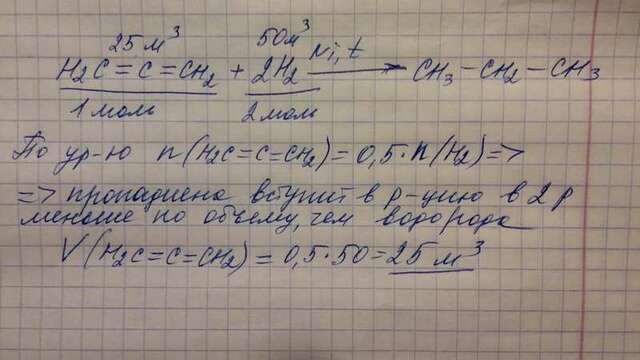 25 м³ 50 м³
H₂C=C=CH₂ + 2H₂ Ni, t → CH₃-CH₂-CH₃
1 моль 2 моль
По ур-ю n(H₂C=C=CH₂)=0,5·n(H₂)=>
=> пропадиена вступит в р-цию в 2 р
меньше по объему, чем водорода
V(H₂C=C=CH₂)=0,5·50=25 м³